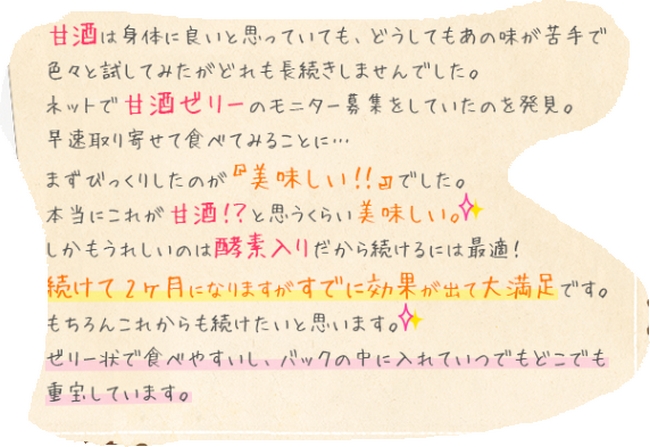 甘酒は身体に良いと思っていても、どうしてもあの味が苦手で
色々と試してみたがどれも長続きしませんでした。
ネットで甘酒ゼリーのモニター募集をしていたのを発見。
早速取り寄せて食べてみることに…
まずびっくりしたのが『美味しい!!』でした。
本当にこれが甘酒!?と思うくらい美味しい。
しかもうれしいのは酵素入りだから続けるには最適!
続けて2ヶ月になりますがすでに効果が出て大満足です。
もちろんこれからも続けたいと思います。
ゼリー状で食べやすいし、バックの中に入れていつでもどこでも
重宝しています。